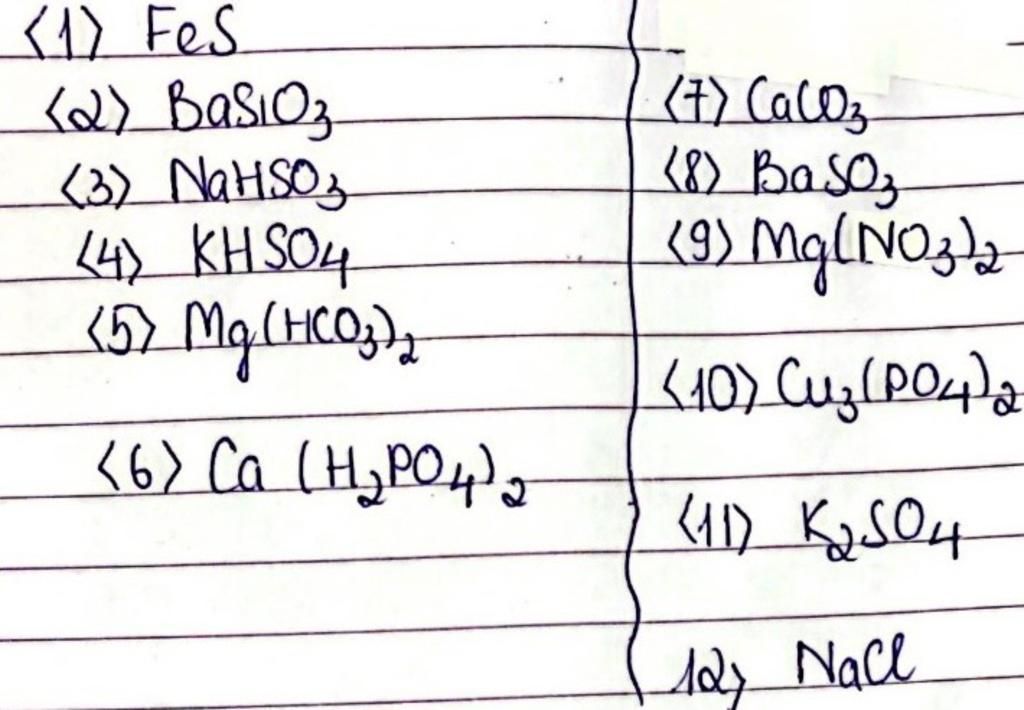 <1> FeS
<2> BaSiO₃
<3> NaHSO₃
<4> KHSO₄
<5> Mg(HCO₃)₂
<6> Ca (H₂PO₄)₂
<7> CaCO₃
<8> BaSO₃
<9> Mg(NO₃)₂
<10> Cu₃(PO₄)₂
<11> K₂SO₄
12> NaCl